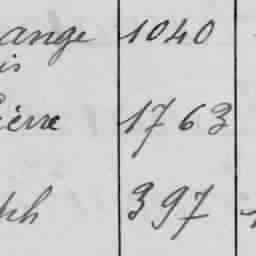 ange 1040
is
ierre 1763
ph 397